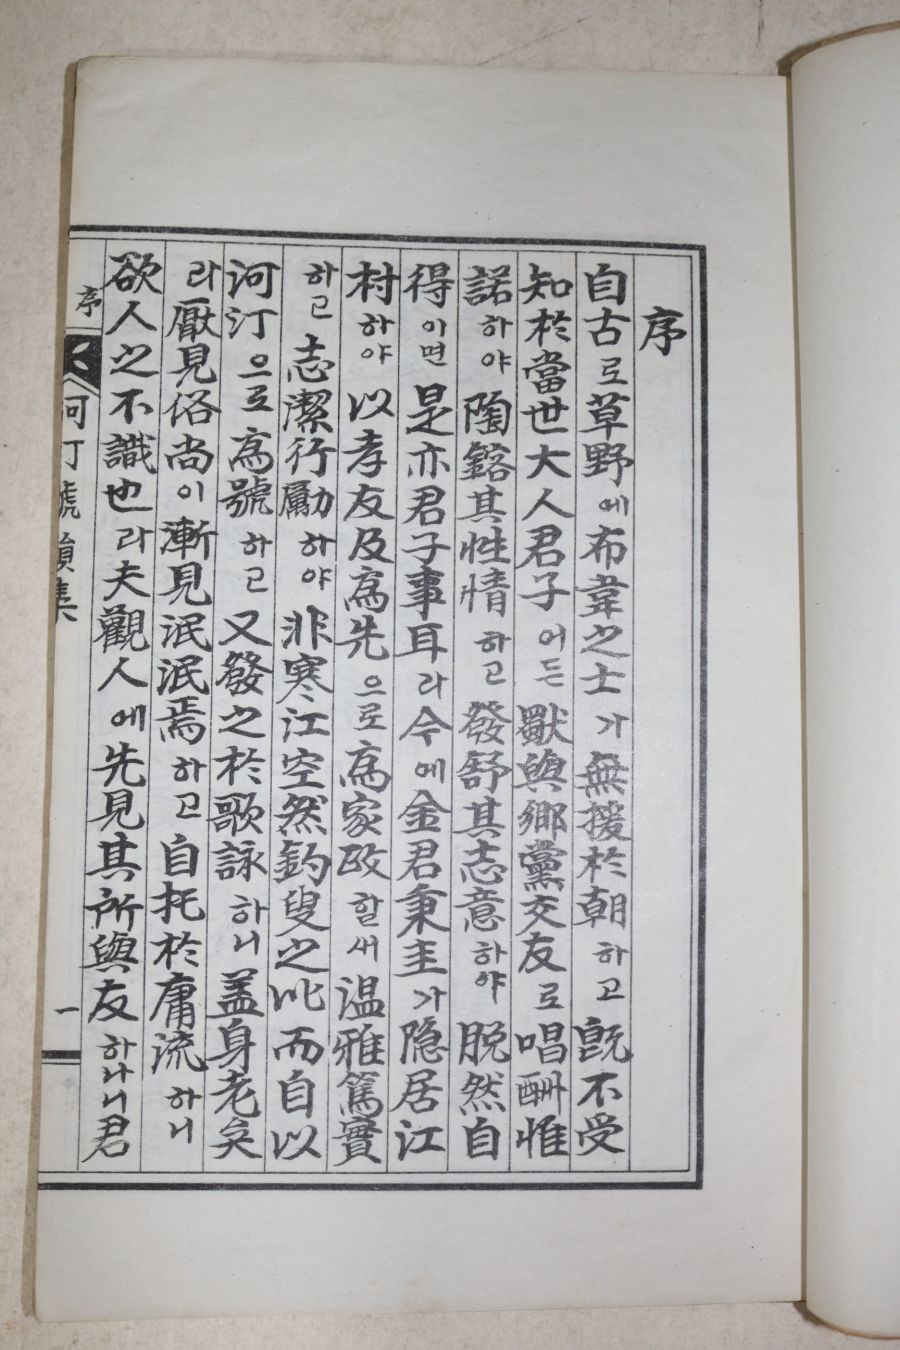 序
自古로草野에布韋之士가無援於朝하고旣不受
知於當世大人君子어든獸與鄉黨交友로唱酬惟
諾하야陶鎔其性情하고發舒其志意하야脫然自
得이면是亦君子事耳라今에金君秉圭가隐居江
村하야以孝友及爲先으로爲家政할새温雅篤實
하고志潔行勵하야非寒江空然釣叟之比而自以
河汀으로爲號하고又發之於歌詠하니盖身老矣
라厭見俗尚이漸見泯泯焉하고自托於庸流하니
欲人之不識也라夫觀人에先見其所與友하나니君
序
河汀號韻集
一